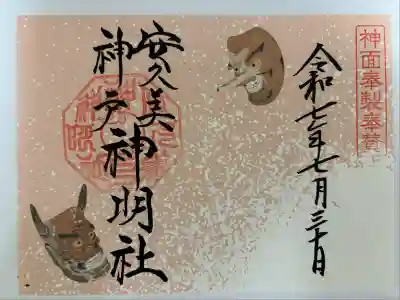 神面奉製奉賛
令和七年七月三十日
安久美
神戸神明社